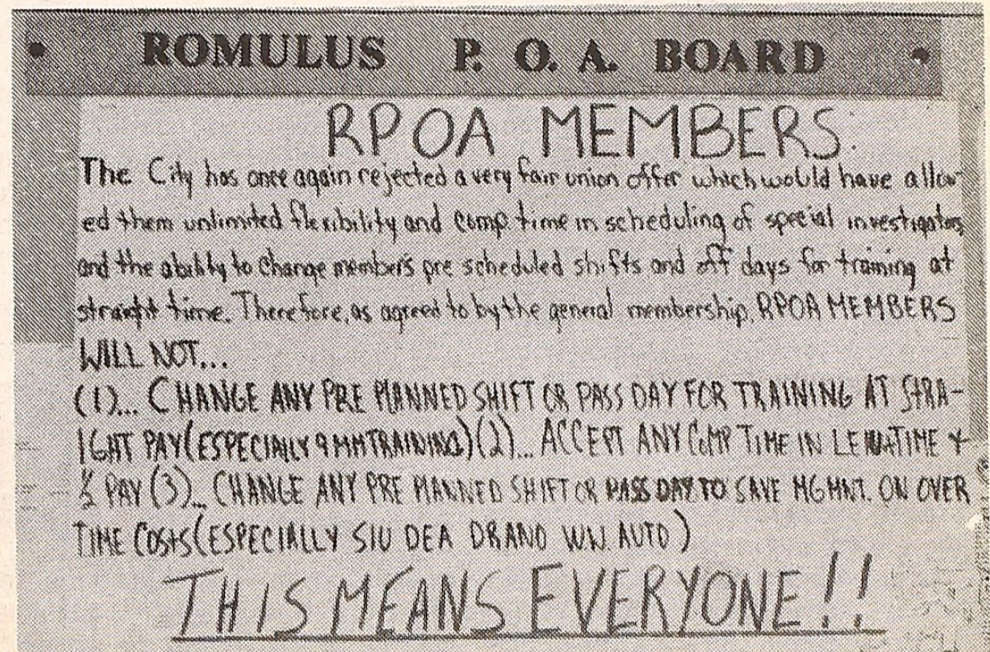 • ROMULUS P. O. A. BOARD •
RPOA MEMBERS:
The City has once again rejected a very fair union offer which would have allow-
ed them unlimited flexibility and comp. time in scheduling of special investigators
and the ability to change member's pre scheduled shifts and off days for training at
straight time. Therefore, as agreed to by the general membership, RPOA MEMBERS
WILL NOT...
(1)... CHANGE ANY PRE PLANNED SHIFT OR PASS DAY FOR TRAINING AT STRA-
IGHT PAY (ESPECIALLY 9MM TRAINING) (2)... ACCEPT ANY COMP TIME IN TIME &
½ PAY (3)... CHANGE ANY PRE PLANNED SHIFT OR PASS DAY TO SAVE MGMNT. ON OVER
TIME COSTS (ESPECIALLY SIU DEA DRANO W.W. AUTO)
THIS MEANS EVERYONE!!